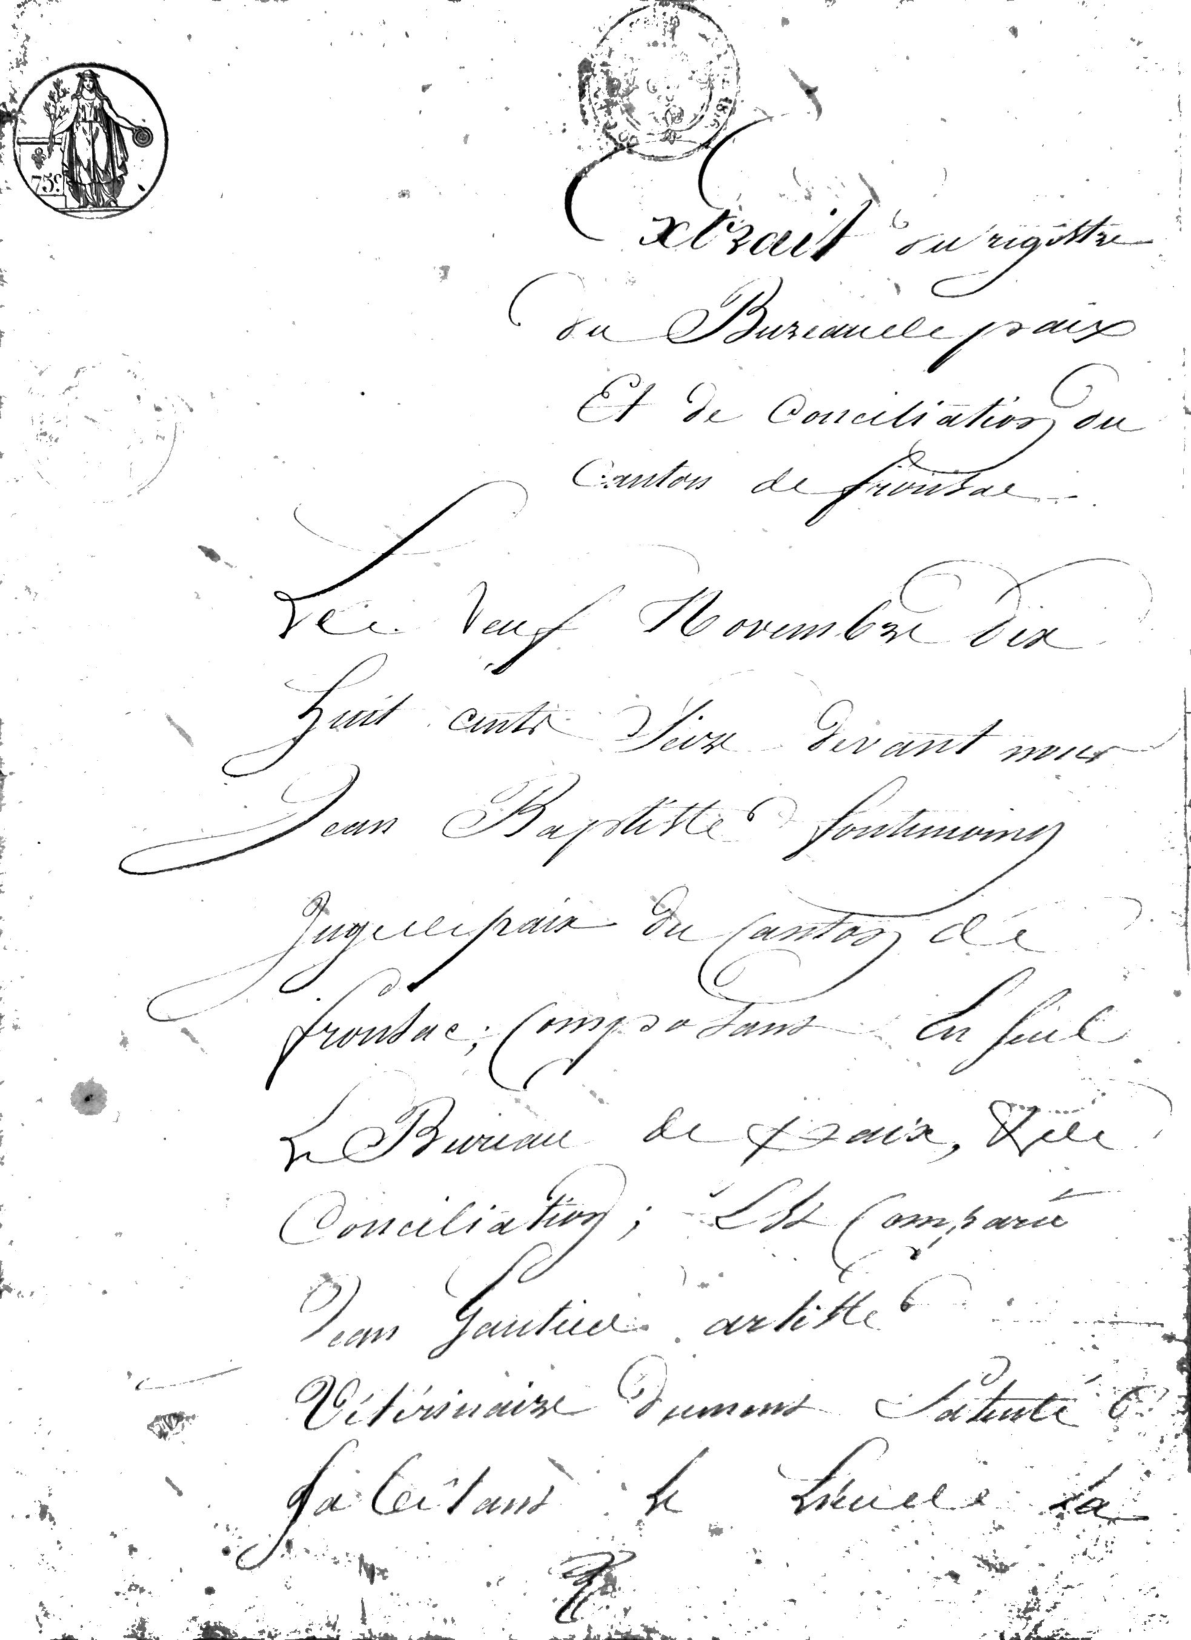 75c.
1816
Extrait du registre
du Bureau de paix
Et de Conciliation du
Canton de fronsac
Le neuf Novembre dix
huit cents seize devant nous
Jean Baptiste fontemoing
Juge de paix du Canton de
fronsac; Composant en seul
Le Bureau de paix, & de
Conciliation; Est Comparu
Jean Gautier artiste
Vétérinaire dument Patenté
habitant le Lieu de La